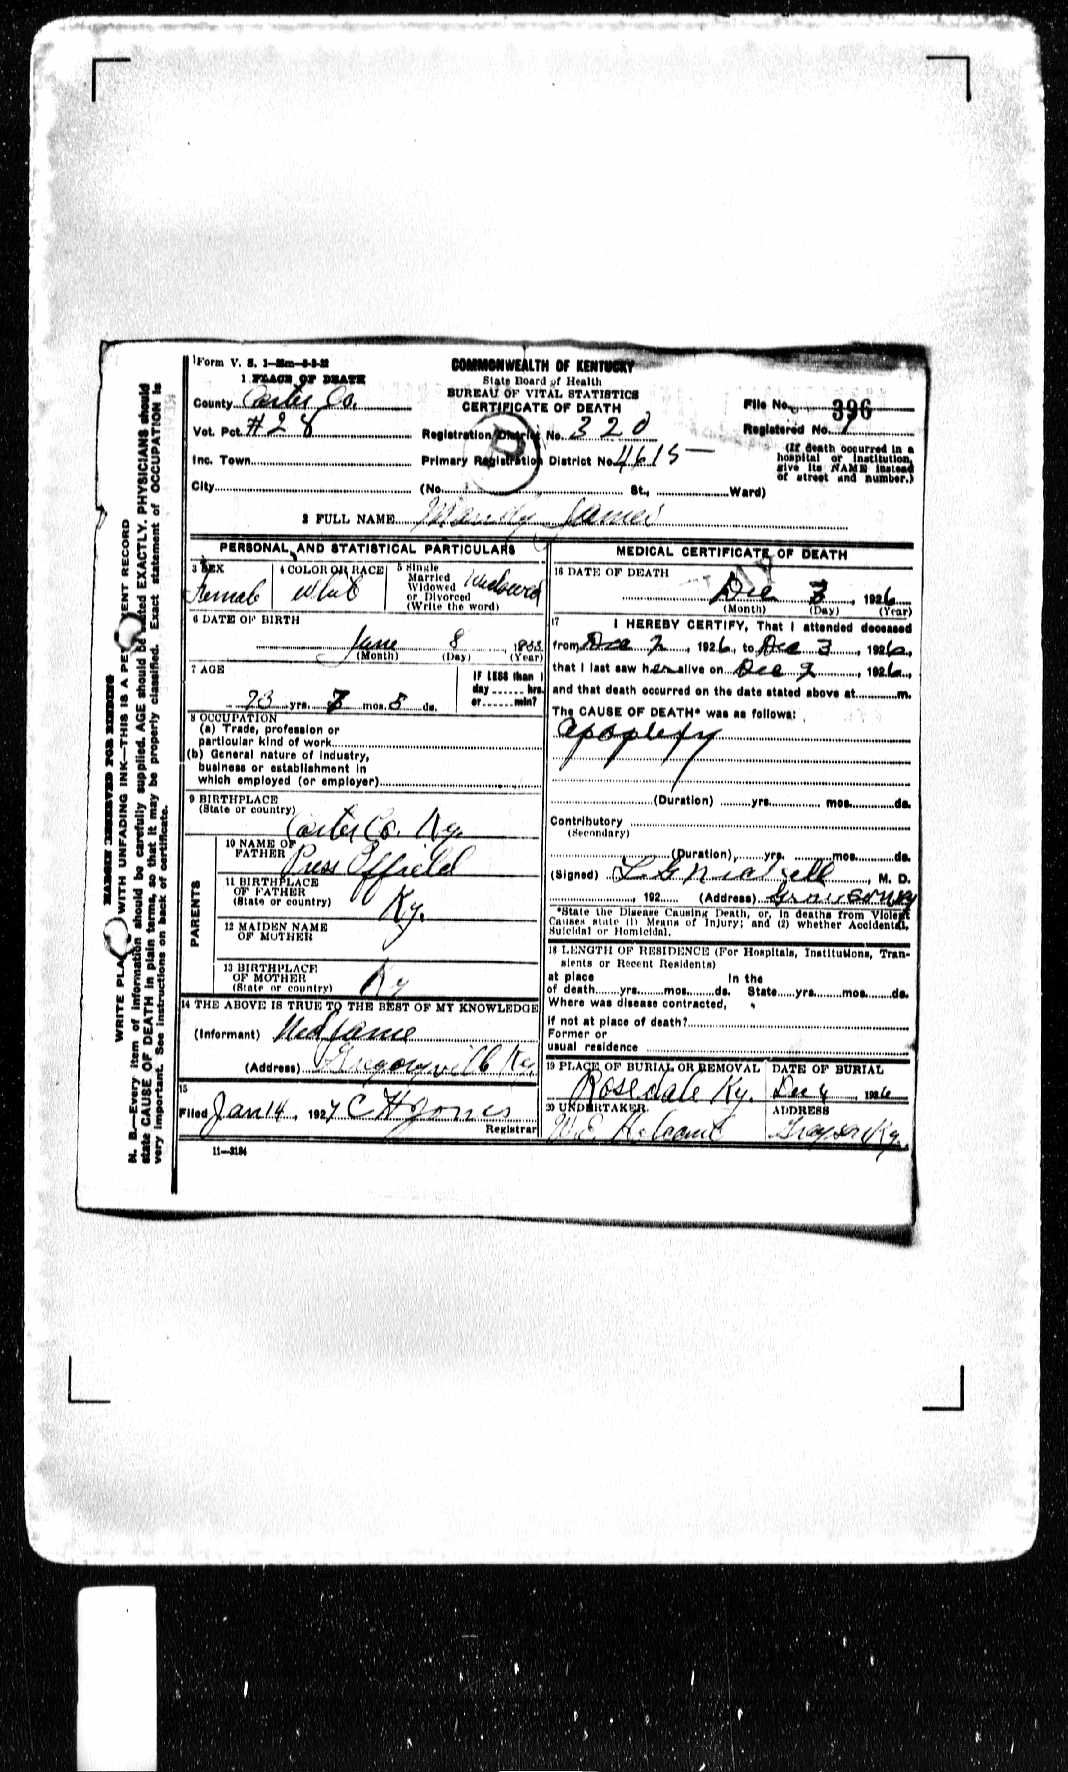 Form V. S. 1
1 PLACE OF DEATH
County Carter Co.
Vot. Pct. #28
Inc. Town
City
COMMONWEALTH OF KENTUCKY
State Board of Health
BUREAU OF VITAL STATISTICS
CERTIFICATE OF DEATH
Registration District No. 320
Primary Registration District No. 4615
(No. St., Ward)
File No. 396
Registered No. 1
(If death occurred in a
hospital or institution,
give its NAME instead
of street and number.)
2 FULL NAME Mandy James
PERSONAL AND STATISTICAL PARTICULARS
3 SEX
Female
4 COLOR OR RACE
White
5 Single
Married
Widowed
or Divorced
(Write the word)
Widowed
6 DATE OF BIRTH
June 8
(Month) (Day) (Year)
7 AGE
73 yrs. mos. ds.
IF LESS than 1
day hrs.
or min?
8 OCCUPATION
(a) Trade, profession or
particular kind of work
(b) General nature of industry,
business or establishment in
which employed (or employer)
9 BIRTHPLACE
(State or country)
Carter Co. Ky.
PARENTS
10 NAME OF
FATHER
Press Effield
11 BIRTHPLACE
OF FATHER
(State or country)
Ky.
12 MAIDEN NAME
OF MOTHER
13 BIRTHPLACE
OF MOTHER
(State or country)
Ky
14 THE ABOVE IS TRUE TO THE BEST OF MY KNOWLEDGE
(Informant) Ned Jame
(Address) Gregoryville Ky.
15
Filed Jan 14, 1927 C H Jones
Registrar
11—3184
MEDICAL CERTIFICATE OF DEATH
16 DATE OF DEATH
Dec 3, 1926
(Month) (Day) (Year)
17 I HEREBY CERTIFY, That I attended deceased
from Dec 2, 1926, to Dec 3, 1926,
that I last saw her alive on Dec 2, 1926,
and that death occurred on the date stated above at m.
The CAUSE OF DEATH* was as follows:
apoplexy
(Duration) yrs. mos. ds.
Contributory
(Secondary)
(Duration) yrs. mos. ds.
(Signed) L G Nickell, M. D.
, 192 (Address) Grayson Ky
*State the Disease Causing Death, or, in deaths from Violent
Causes state (1) Means of Injury; and (2) whether Accidental,
Suicidal or Homicidal.
18 LENGTH OF RESIDENCE (For Hospitals, Institutions, Tran-
sients or Recent Residents)
at place In the
of death yrs. mos. ds. State yrs. mos. ds.
Where was disease contracted,
if not at place of death?
Former or
usual residence
19 PLACE OF BURIAL OR REMOVAL
Rosedale Ky.
DATE OF BURIAL
Dec 4 1926
20 UNDERTAKER
W.E.
ADDRESS
Grayson Ky.
MARGIN RESERVED FOR BINDING
WRITE PLAINLY WITH UNFADING INK—THIS IS A PERMANENT RECORD
N. B.—Every item of information should be carefully supplied. AGE should be stated EXACTLY. PHYSICIANS should
state CAUSE OF DEATH in plain terms, so that it may be properly classified. Exact statement of OCCUPATION is
very important. See instructions on back of certificate.